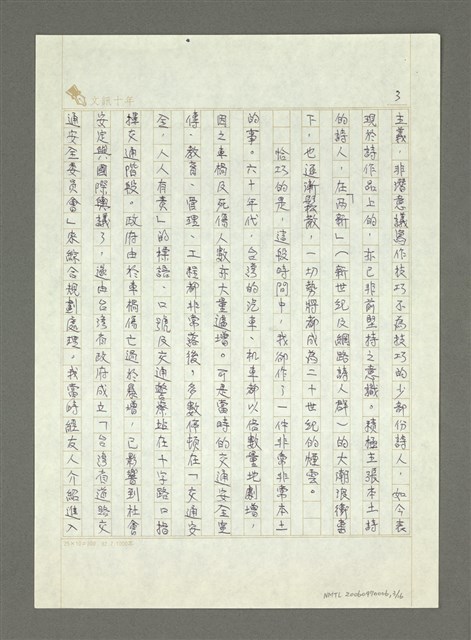 3
文訊十年
主義，非潛意識寫作技巧不為技巧的少部份詩人，如今表
現於詩作品上的，亦已非前堅持之意識。積極主張本土詩
的詩人，在「兩新」（新世紀及網路詩人群）的大潮浪衝書
下，也逐漸鬆散，一切勢將都成為二十世紀的煙雲。
恰巧的是，這段時間中，我卻作了一件非常非常本土
的事。六十年代，台灣的汽車、机車都以倍數量地劇增，
因之車禍及死傷人數亦大量遽增。可是當時的交通安全宣
傳、教育、管理、工程都非常落後，多數停頓在「交通安
全，人人有責」的標語、口號及交通警察站在十字路口指
揮交通階段。政府由於車禍傷亡過於暴增，已影響到社會
安定與國際輿議了，遂由台灣省政府成立「台灣省道路交
通安全委員會」來綜合規劃處理，我當時經友人介紹進入
NMTL 2006049